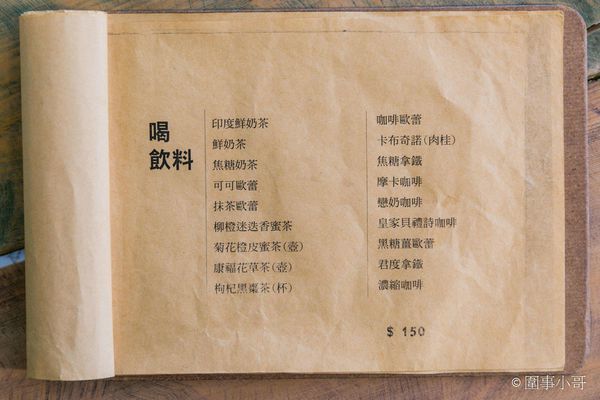 喝
飲料
印度鮮奶茶
鮮奶茶
焦糖奶茶
可可歐蕾
抹茶歐蕾
柳橙迷迭香蜜茶
菊花橙皮蜜茶(壺)
康福花草茶(壺)
枸杞黑棗茶(杯)
咖啡歐蕾
卡布奇諾(肉桂)
焦糖拿鐵
摩卡咖啡
戀奶咖啡
皇家貝禮詩咖啡
黑糖薑歐蕾
君度拿鐵
濃縮咖啡
$ 150
© 圍事小哥